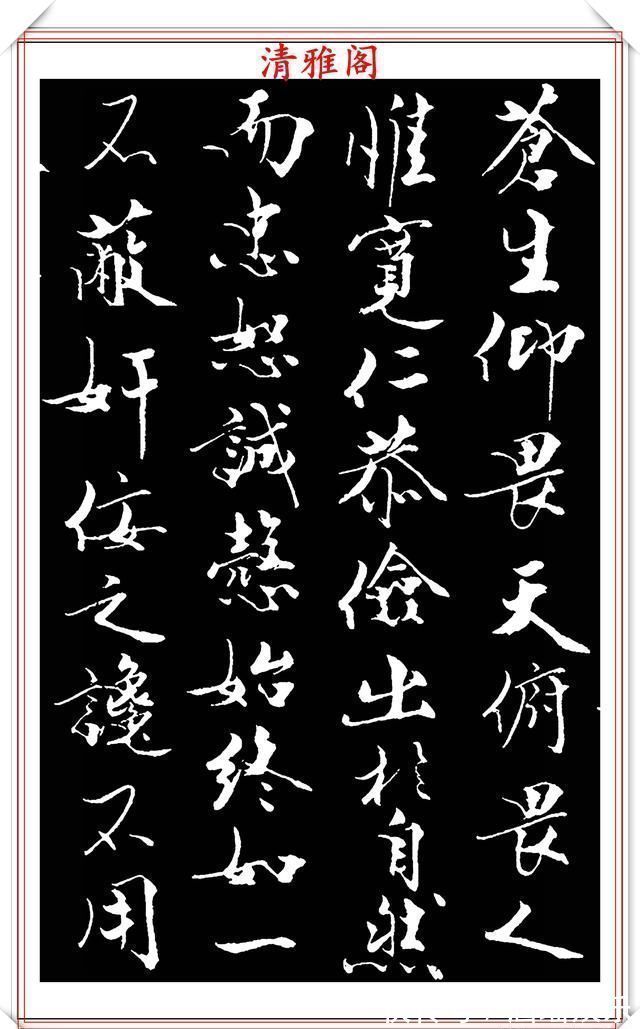 清雅阁
蒼生仰畏天俯畏人
惟寬仁恭儉出於自然
而忠恕誠慤始終如一
不蔽奸佞之讒不用